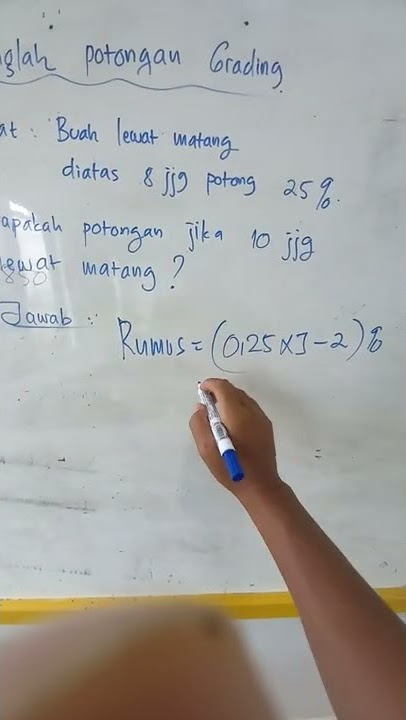 potongan Grading
Buah lewat matang
diatas 8 jjg potong 25%.
apakah potongan jika 10 jjg
lewat matang ?
Jawab :
Rumus = (0,25 x J - 2) %